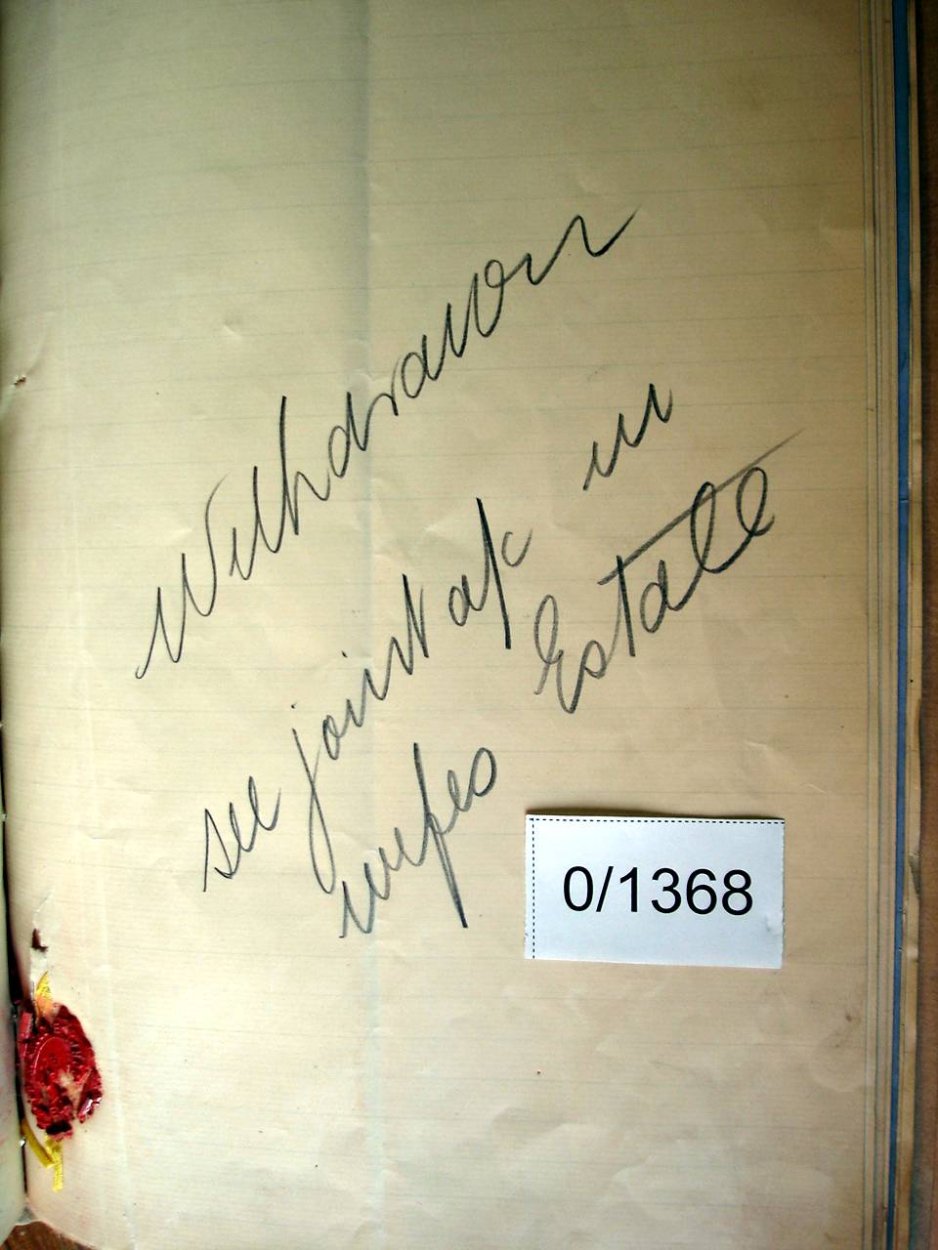 Withdrawn
see joint a/c in
wifes Estate
0/1368